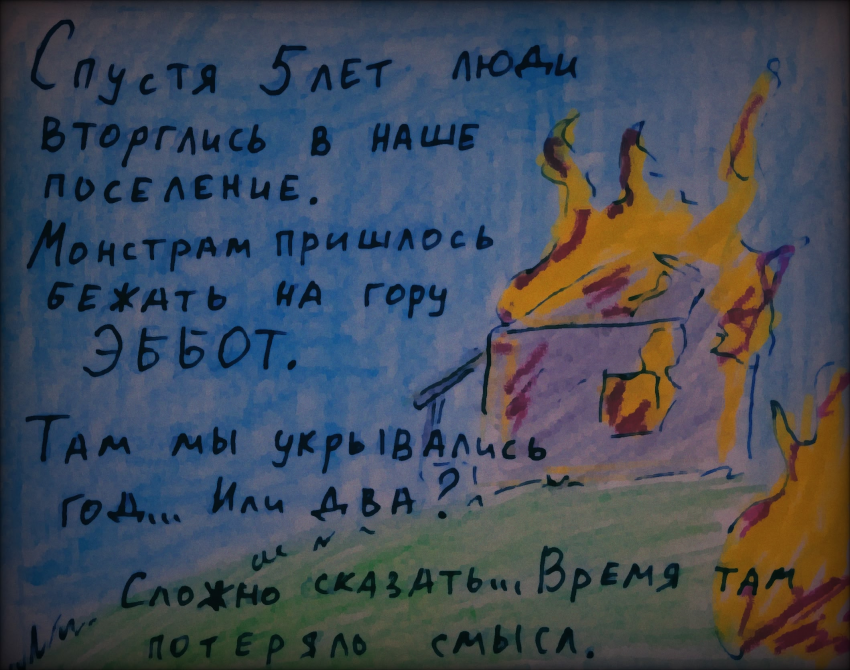 Спустя 5 лет люди
вторглись в наше
поселение.
Монстрам пришлось
бежать на гору
ЭББОТ.
Там мы укрывались
год... Или два?
Сложно сказать... Время там
потеряло смысл.